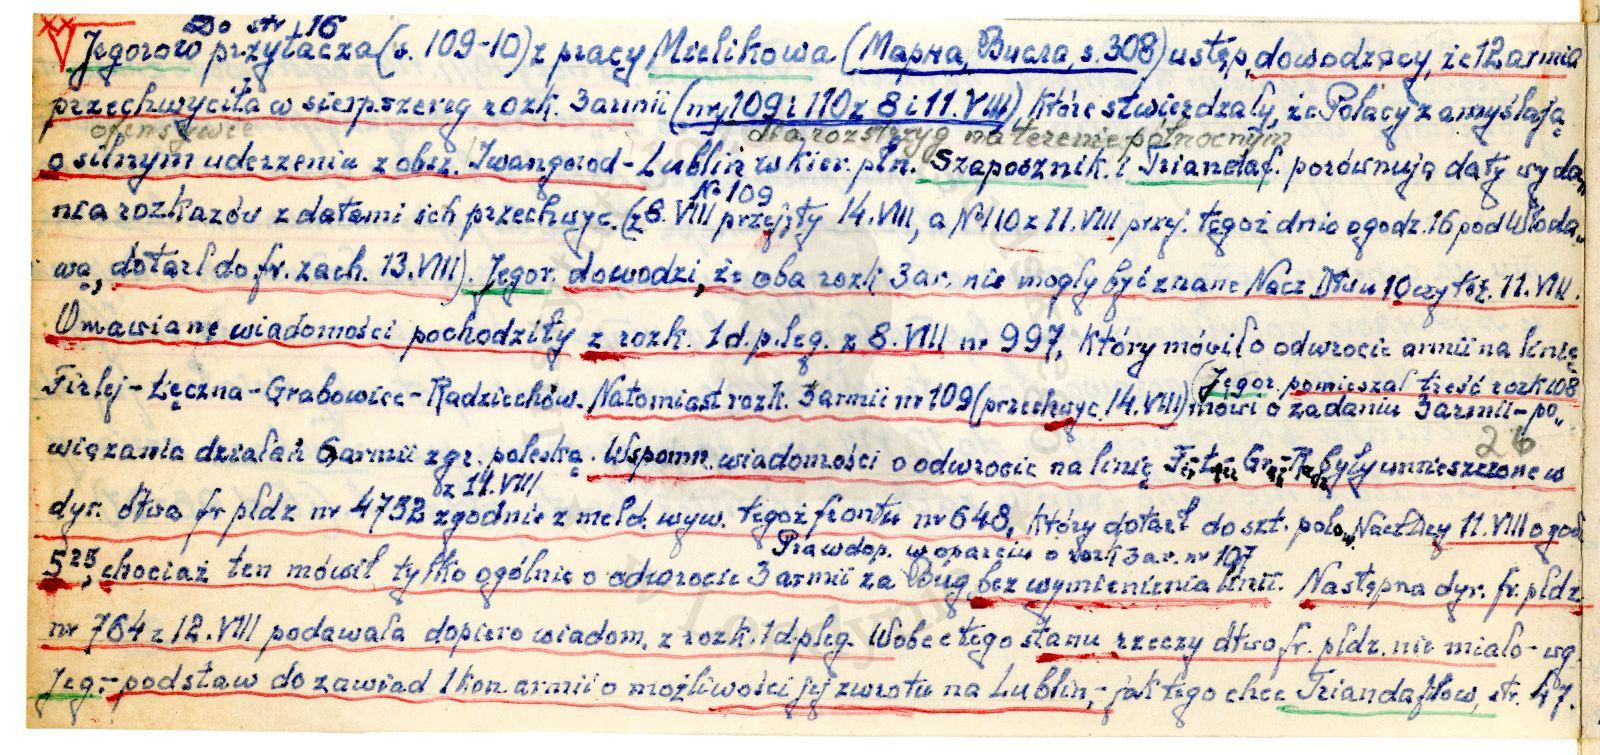 Do str. 16
Jegorow przytacza (s. 109-10) z pracy Mielikowa (Марна, Висла, s. 308) ustęp, dowodzący, że 12 armia
przechwyciła w sierp. szereg rozk. 3 armii (nry 109 i 110 z 8 i 11. VIII), które stwierdzały, że Polacy zamyślają
ofensywie dla rozstrzyg na terenie północnym
o silnym uderzeniu z obsz. Iwangorod - Lublin w kier. płn. Szaposznik. i Triandaf. porównują daty wyda-
nia rozkazów z datami ich przechwyc. (z 8. VIII przejęty 14. VIII, a № 110 z 11. VIII przej. tegoż dnia o godz. 16 pod Włoda-
№ 109
wą, dotarł do fr. zach. 13. VIII). Jegor. dowodzi, że oba rozk 3 ar. nie mogły być znane Nacz Dtwu 10 czy też. 11. VIII.
Omawiane wiadomości pochodziły z rozk. 1 d. p. leg. z 8. VIII nr 997, który mówił o odwrocie armii na linię
Firlej - Łęczna - Grabowiec - Radziechów. Natomiast rozk. 3 armii nr 109 (przechwyc. 14. VIII) mówi o zadaniu 3 armii - po-
(Jegor. pomieszał treść rozk 108
wiązania działań 6 armii z gr. poleską. Wspomn. wiadomości o odwrocie na linię Fir-Łęc Gra-Radz były umieszczone w
26
z 11. VIII
dyr. dtwa fr płdz nr 4752 zgodnie z meld. wyw. tegoż frontu nr 648, który dotarł do szt. polow. Nacz Dcy 11. VIII o godz
5²⁵, chociaż ten mówił tylko ogólnie o odwrocie 3 armii za Bug bez wymienienia linii. Następna dyr. fr. płdz
Prawdop. w oparciu o rozk 3 ar. nr 107
nr 764 z 12. VIII podawała dopiero wiadom. z rozk. 1 d. p. leg. Wobec tego stanu rzeczy dtwo fr. płdz. nie miało - wg
Jeg. - podstaw do zawiad 1 kon. armii o możliwości jej zwrotu na Lublin, - jak tego chce Triandafiłow, str. 47.